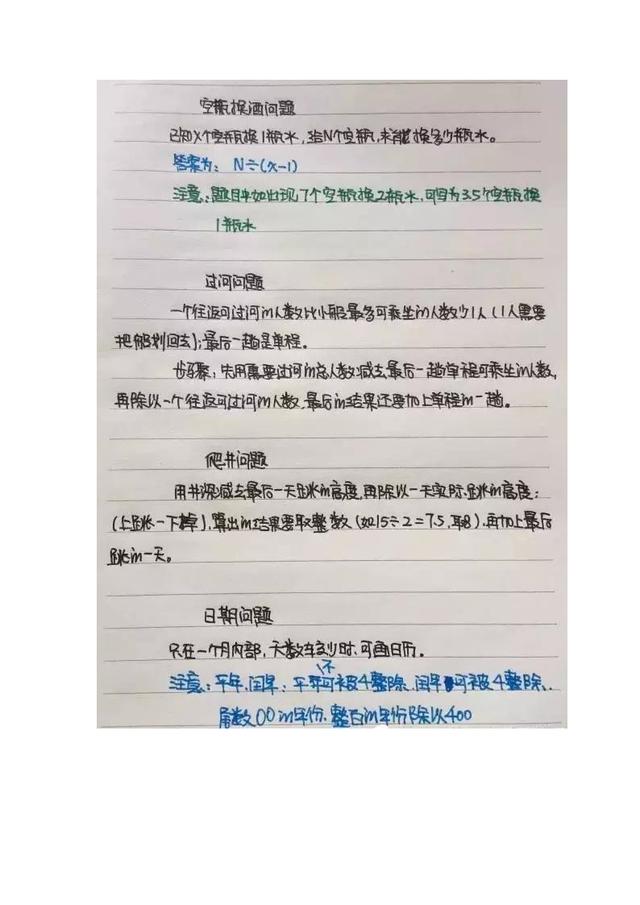 空瓶换酒问题
已知X个空瓶换1瓶水,给N个空瓶,求能换多少瓶水。
答案为: N÷(x-1)
注意:题目中如出现7个空瓶换2瓶水,可写为3.5个空瓶换
1瓶水
过河问题
一个往返可过河的人数比小船最多可乘坐的人数少1人(1人需要
把船划回去);最后一趟是单程。
步骤:先用需要过河的总人数减去最后一趟单程可乘坐的人数,
再除以一个往返可过河的人数.最后的结果还要加上单程的一趟。
爬井问题
用井深减去最后一天跳的高度,再除以一天实际跳的高度:
(上跳-下掉),算出的结果要取整数(如15÷2=7.5,取8).再加上最后
跳的一天。
日期问题
只在一个月内部,天数较少时,可画日历。
不
注意:平年,闰年:平年可被4整除,闰年可被4整除,
尾数00的年份,整百的年份除以400